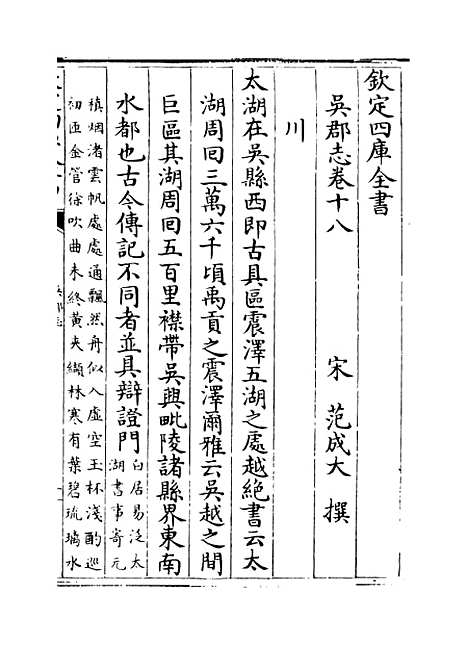 欽定四庫全書
吳郡志卷十八　宋　范成大　撰
川
太湖在吳縣西即古具區震澤五湖之處越絶書云太
湖周回三萬六千頃禹貢之震澤爾雅云吳越之間
巨區其湖周回五百里襟帶吳興毗陵諸縣界東南
水都也古今傳記不同者並具辯證門
白居易泛太
湖書事寄元
稹烟渚雲帆處處通飄然舟似入虛空玉杯淺酌巡
初匝金管徐吹曲未終黄夾纈林寒有葉碧琉璃水